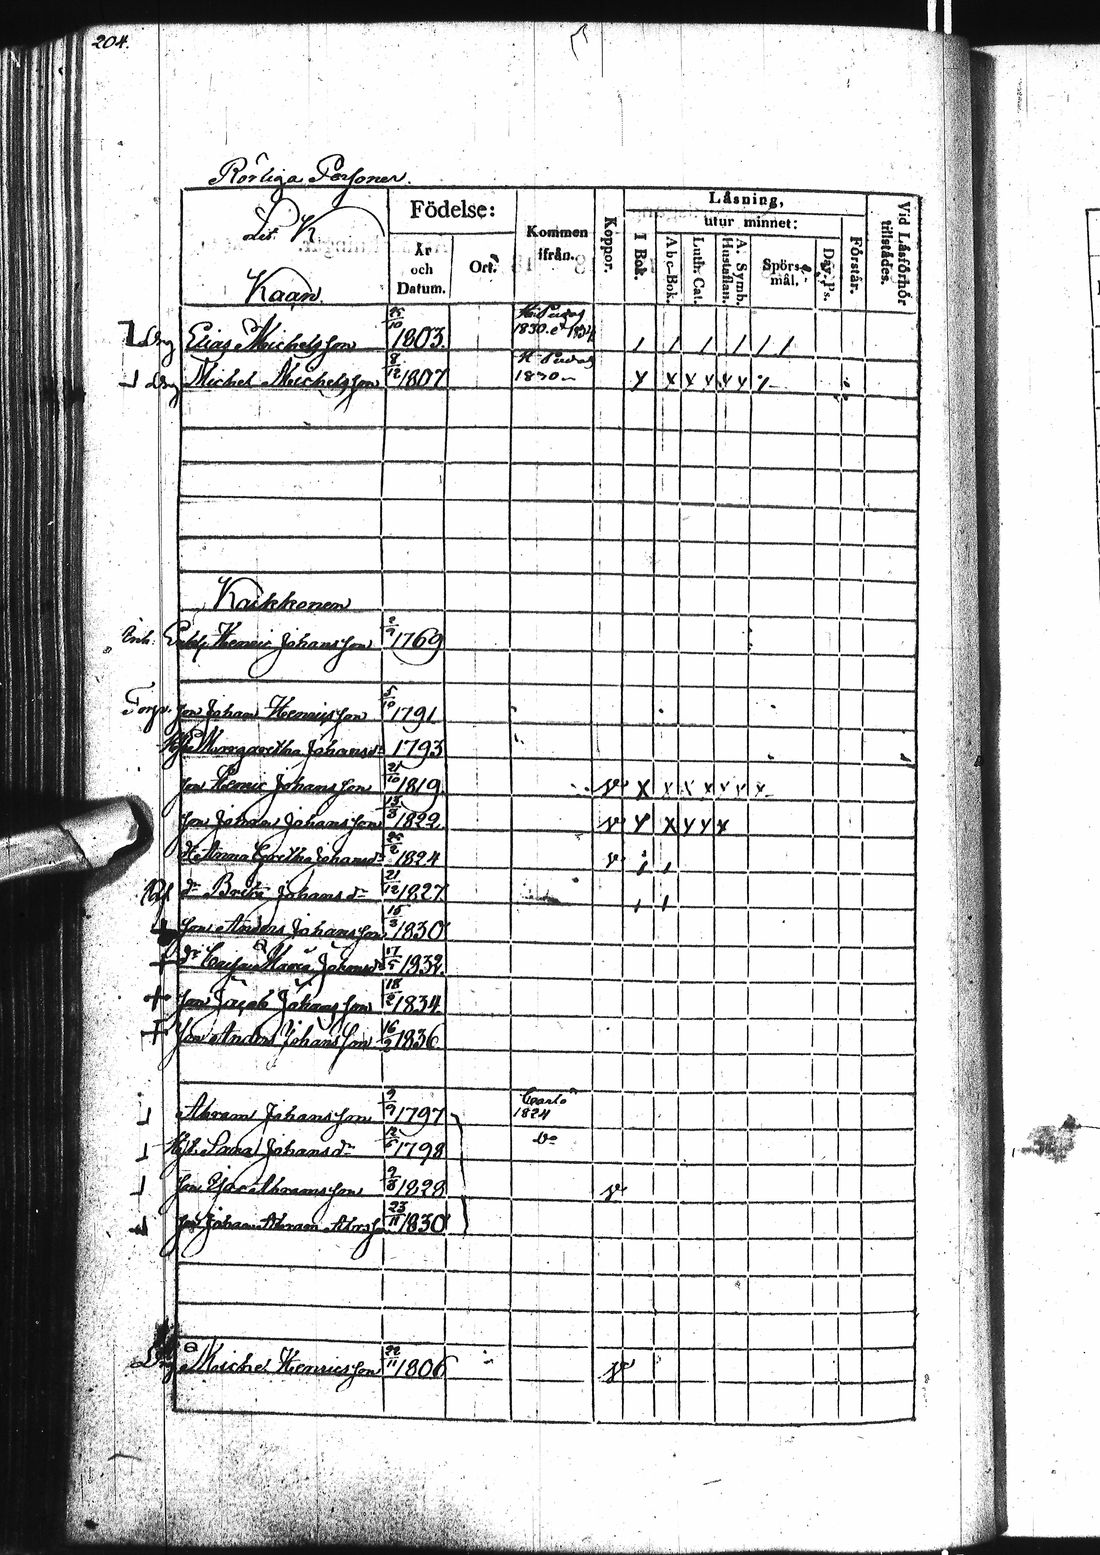 204.
Rörliga Personer.
Litt. K
Kaan
Födelse:
År och Datum.
Ort.
Kommen ifrån.
Koppor.
Läsning,
I Bok.
utur minnet:
Abc-Bok.
Luth. Cat.
A. Symb. Hustaflan.
Spörsmål.
Dav. Ps.
Förstår.
Vid Läsförhör tillstädes.
Drg Elias Michelsson 25/10 1803. 1830. / / / / / /
Drg Michel Michelsson 8/12 1807 1830 x x x x x x
Kaikkonen
Inh. Henric Johansson 1769
Torp. Son Johan Henricsson 5/10 1791
Margaretha Johansdr 1793
Son Henric Johansson 21/10 1819 v x x x x x x x
Son Johan Johansson 1822 v x x x x x
Anna Gretha Johansdr 1824 v
dr Brita Johansdr 21/12 1827
Son Anders Johansson 1830
dr Maria Johansdr 17/5 1932
Son Jacob Johansson 18/2 1834
Son Anders Johansson 16/2 1836
Abram Johansson 9/9 1797 Carlö 1824
Johansdr 12/5 1798 Do
Son Abramsson 9/8 1828 v
Son Johan Abram Abrsson 23/11 1830
Drg Michel Henricsson 22/11 1806 v